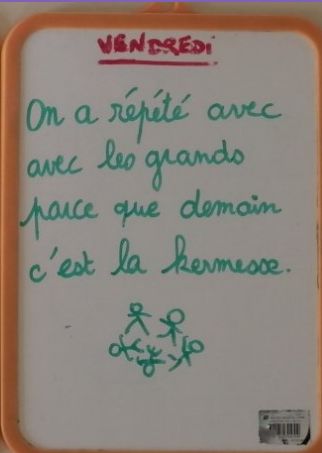 VENDREDi
On a répété avec
avec les grands
parce que demain
c'est la kermesse.